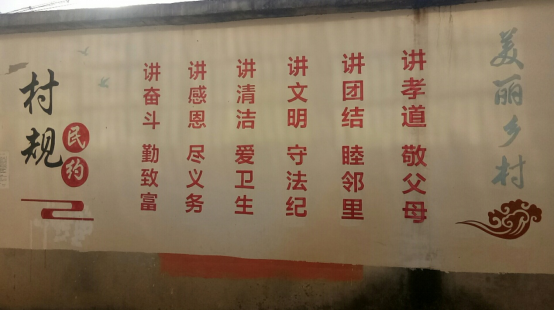 美丽乡村
讲孝道 敬父母
讲团结 睦邻里
讲文明 守法纪
讲清洁 爱卫生
讲感恩 尽义务
讲奋斗 勤致富
村规
民约